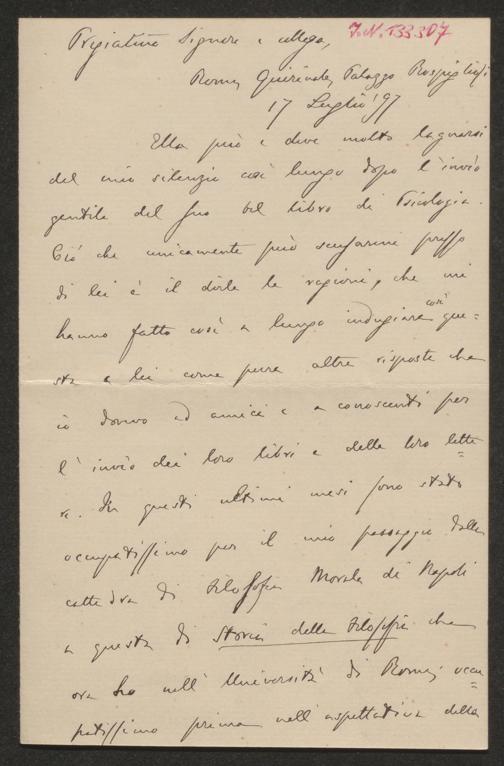 Pregiatimo Signore e collega,
I.N. 133.307
Roma, Quirinale, Palazzo Rospigliosi
17 Luglio '97
Ella può e deve molto lagnarsi
del mio silenzio così lungo dopo l'invio
gentile del suo bel libro di Psicologia.
Ciò che unicamente può scusarmi presso
di lei è il dirle le ragioni, che mi
hanno fatto così a lungo indugiare così que=
sta a lei come pure altre risposte che
io dovevo ad amici e a conoscenti per
l'invio dei loro libri e delle loro lette
=
re. In questi ultimi mesi sono stato
occupatissimo per il mio passaggio dalla
cattedra di Filosofia Morale di Napoli
a questa di Storia della Filosofia che
ora ho nell'Università di Roma; occu
=
patissimo prima nell'aspettativa della